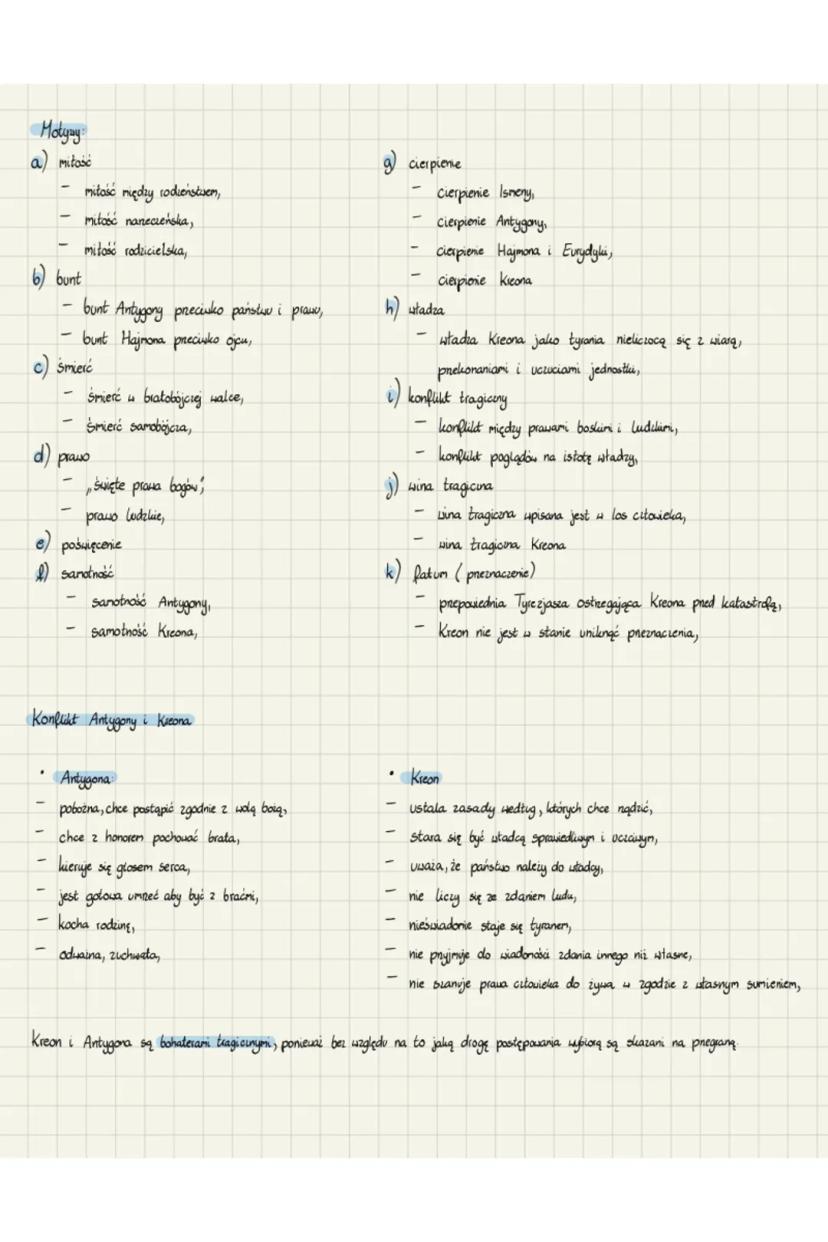 Motywy:
a) miłość
– miłość między rodzeństwem,
– miłość narzeczeńska,
– miłość rodzicielska,
b) bunt
– bunt Antygony przeciwko państwu i prawu,
– bunt Hajmona przeciwko ojcu,
c) śmierć
– śmierć w bratobójczej walce,
– śmierć samobójcza,
d) prawo
– „święte prawa bogów",
– prawo ludzkie,
e) poświęcenie
f) samotność
– samotność Antygony,
– samotność Kreona,
g) cierpienie
– cierpienie Ismeny,
– cierpienie Antygony,
– cierpienie Hajmona i Eurydyki,
– cierpienie Kreona
h) władza
– władza Kreona jako tyrania nielicząca się z wiarą,
przekonaniami i uczuciami jednostki,
i) konflikt tragiczny
– konflikt między prawami boskimi i ludzkimi,
– konflikt poglądów na istotę władzy,
j) wina tragiczna
– wina tragiczna wpisana jest w los człowieka,
– wina tragiczna Kreona
k) fatum (przeznaczenie)
– przepowiednia Tyrezjasza ostrzegająca Kreona przed katastrofą,
– Kreon nie jest w stanie uniknąć przeznaczenia,
Konflikt Antygony i Kreona
• Antygona:
– pobożna, chce postąpić zgodnie z wolą bożą,
– chce z honorem pochować brata,
– kieruje się głosem serca,
– jest gotowa umrzeć aby być z braćmi,
– kocha rodzinę,
– odważna, zuchwała,
• Kreon
– ustala zasady według, których chce rządzić,
– stara się być władcą sprawiedliwym i uczciwym,
– uważa, że państwo należy do władcy,
– nie liczy się ze zdaniem ludu,
– nieświadomie staje się tyranem,
– nie przyjmuje do wiadomości zdania innego niż własne,
– nie szanuje prawa człowieka do życia w zgodzie z własnym sumieniem,
Kreon i Antygona są bohaterami tragicznymi, ponieważ bez względu na to jaką drogę postępowania wybiorą są skazani na przegraną.